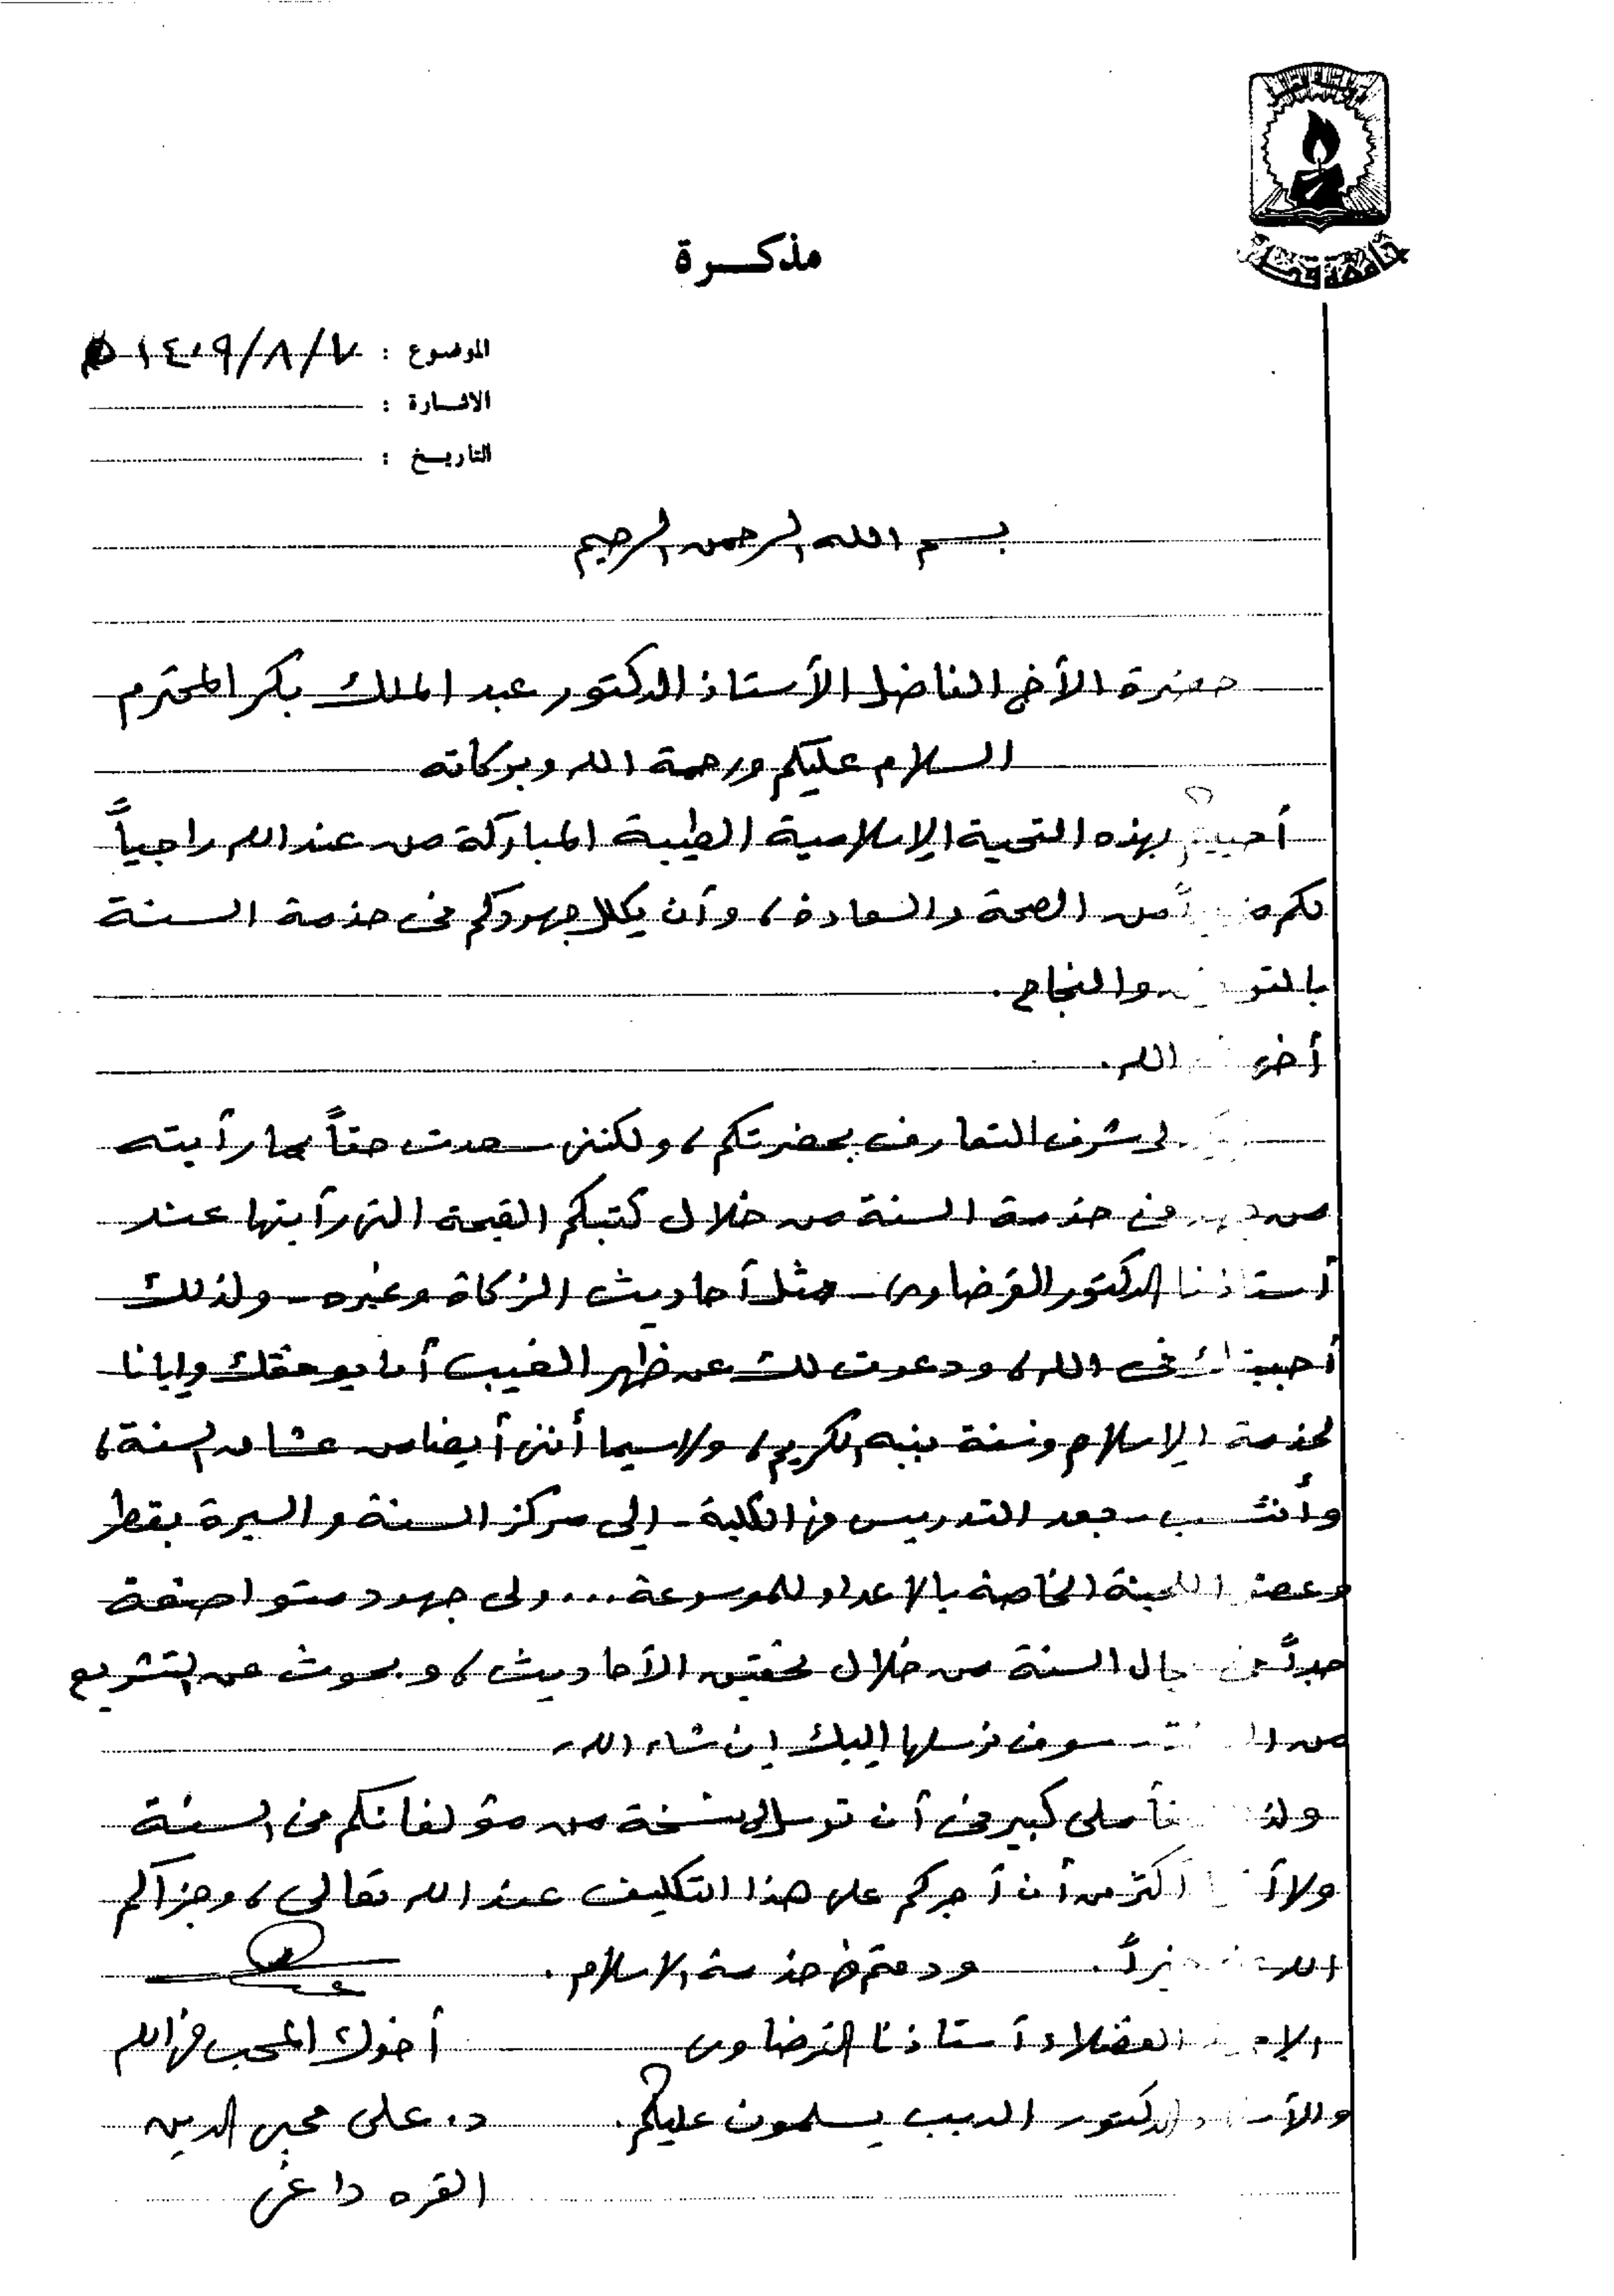 جامعة قطر
مذكرة
الموضوع : ١٤٠٩/٨/٧ هـ
الاشارة :
التاريخ :
بسم الله الرحمن الرحيم
حضرة الأخ الفاضل الأستاذ الدكتور عبد الملك بكر المحترم
السلام عليكم ورحمة الله وبركاته
بهذه التحية الإسلامية الطيبة المباركة من عند الله راجياً
لكم من الصحة والسعادة، وأن يكلل جهودكم في خدمة السنة
والنجاح.
الله.
لي شرف التعارف بحضرتكم، ولكنني سعدت حقاً بما رأيته
من في خدمة السنة من خلال كتبكم القيمة التي رأيتها عند
أستاذنا الدكتور القرضاوي - مثل أحاديث الزكاة وغيره - ولذلك
أحببتك في الله، ودعوت لك عن ظهر الغيب أن يوفقك وإيانا
لخدمة الإسلام وسنة نبيه الكريم، ولا سيما أنني أيضا من عشاق السنة،
بعد التدريس في الكلية - إلى مركز السنة والسيرة بقطر
وعضو اللجنة الخاصة بالإعداد للموسوعة... ولي جهود متواضعة
جداً في السنة من خلال تحقيق الأحاديث، وبحوث عن التشريع
من سوف نرسلها إليك إن شاء الله.
كبير في أن ترسل لي نسخة من مؤلفاتكم في السنة
ولا أكثر من أن أجركم على هذا التكليف عند الله تعالى، وجزاكم
الله خيراً. ودمتم في خدمة الإسلام.
الفضلاء أستاذنا القرضاوي أخوك المحب في الله
الدكتور الديب يسلمون عليكم. د. علي محيي الدين
القره داغي